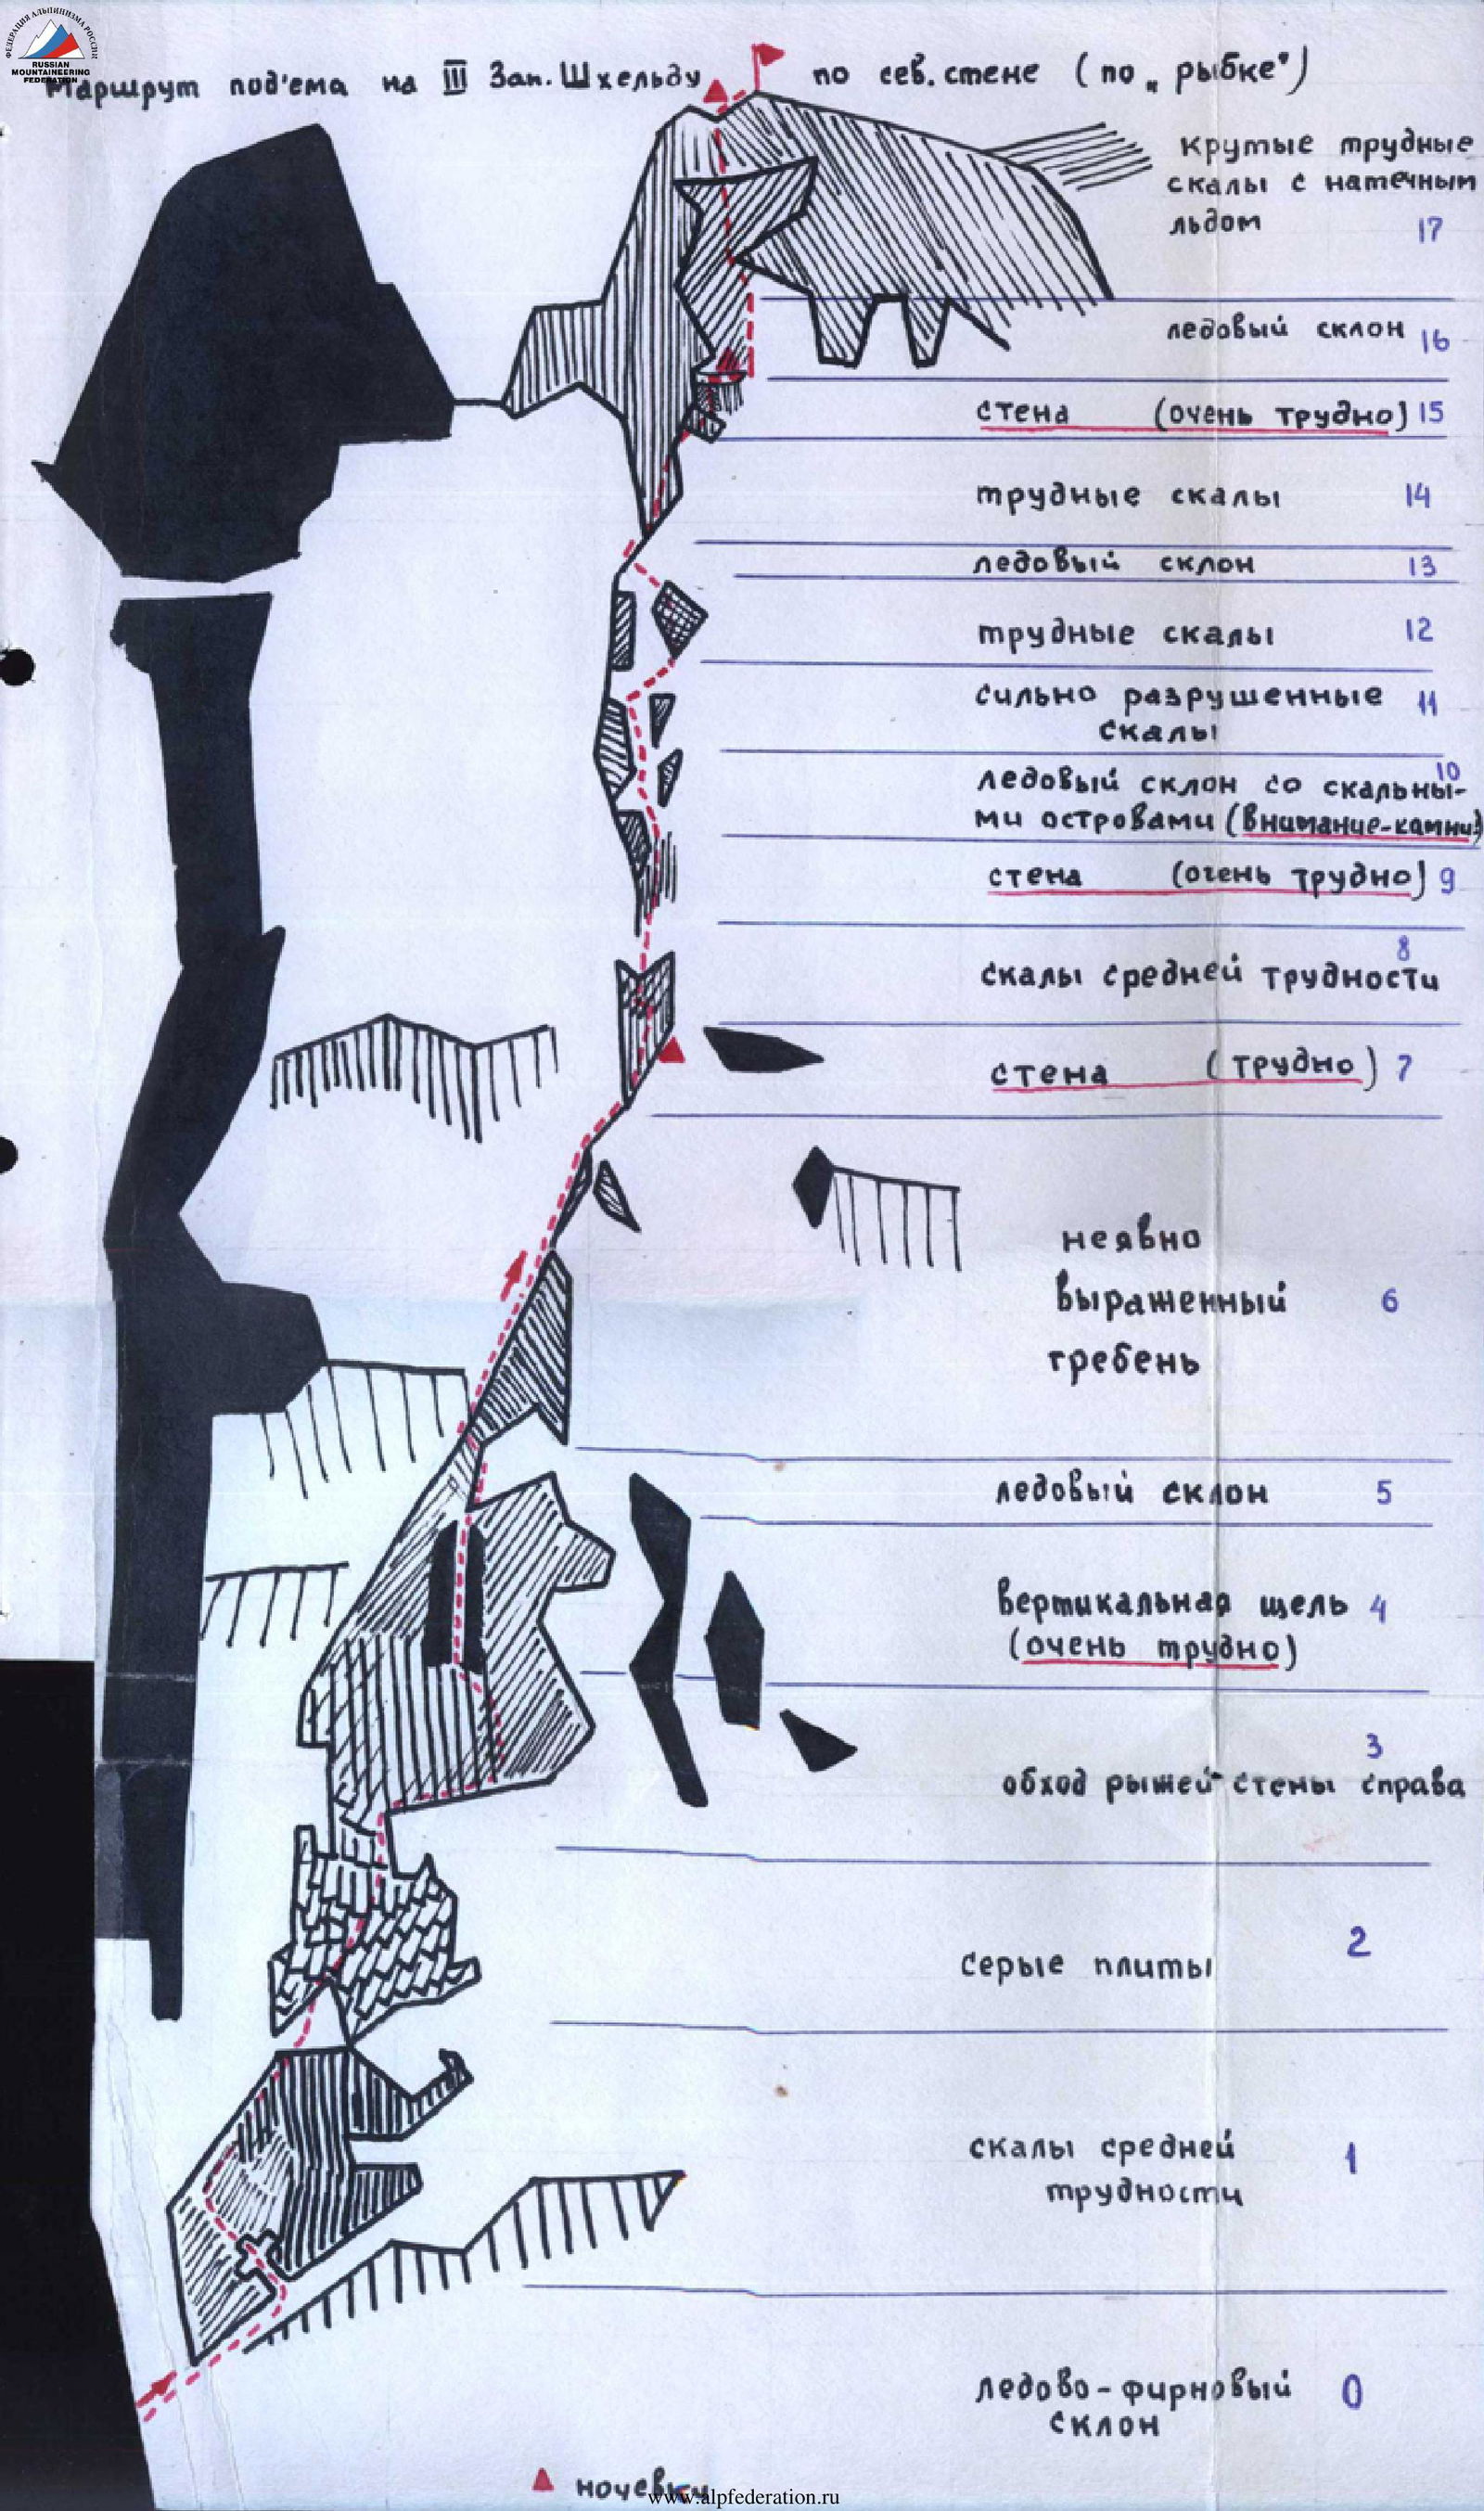 ФЕДЕРАЦИЯ АЛЬПИНИЗМА РОССИИ
RUSSIAN
MOUNTAINEERING
FEDERATION
Маршрут под'ема на III Зап. Шхельду по сев. стене (по „рыбке")
крутые трудные
скалы с натечным
льдом 17
ледовый склон 16
стена (очень трудно) 15
трудные скалы 14
ледовый склон 13
трудные скалы 12
сильно разрушенные 11
скалы
10
ледовый склон со скальны-
ми островами (внимание-камни)
стена (очень трудно) 9
8
скалы средней трудности
стена (трудно) 7
неявно
выраженный 6
гребень
ледовый склон 5
вертикальная щель 4
(очень трудно)
3
обход рыжей стены справа
2
серые плиты
скалы средней 1
трудности
ледово-фирновый 0
склон
ночевки
www.alpfederation.ru